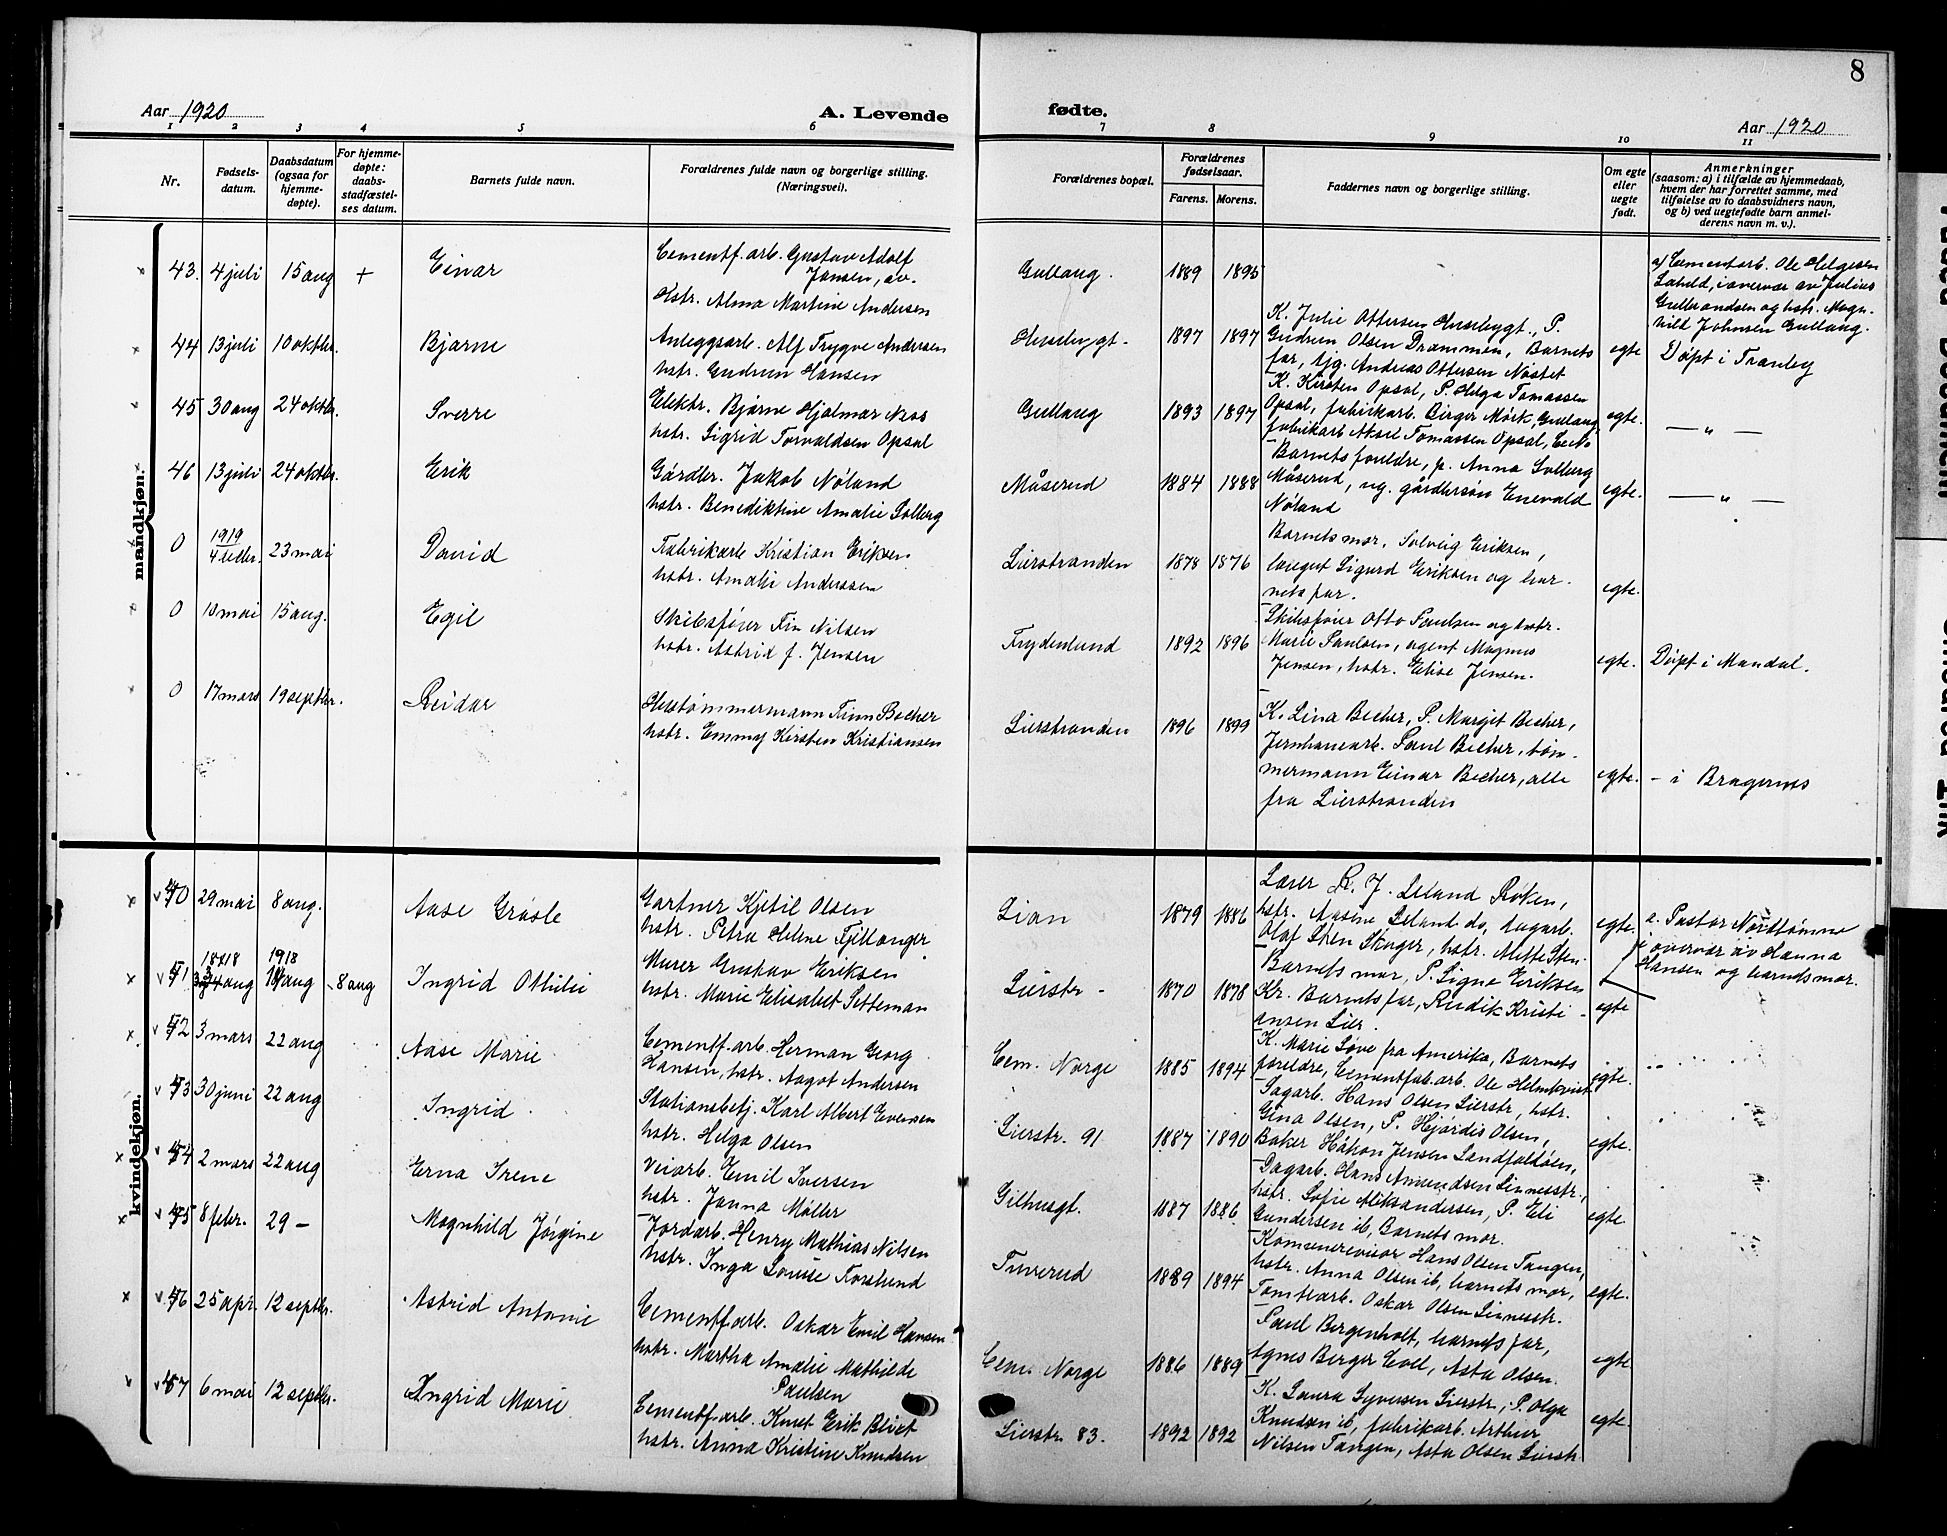 8
Aar 1920
A. Levende
fødte.
Aar 1920
1 2 3 4 5 6 7 8 9 10 11
Nr.
Fødsels-
datum.
Daabsdatum
(ogsaa for
hjemme-
døpte).
For hjemme-
døpte:
daabs-
stadfæstel-
ses datum.
Barnets fulde navn.
Forældrenes fulde navn og borgerlige stilling.
(Næringsvei).
Forældrenes bopæl.
Forældrenes
fødselsaar.
Farens. Morens.
Faddernes navn og borgerlige stilling.
Om egte
eller
uegte
født.
Anmerkninger
(saasom: a) i tilfælde av hjemmedaab,
hvem der har forrettet samme, med
tilføielse av to daabsvidners navn,
og b) ved uegtefødte barn anmel-
derens navn m. v.).
mandkjøn.
43. 4 juli 15 aug + Einar
Cementf. arb. Gustav Adolf
Jansen, av.
Hstr. Alma Martine Andersen
Gullaug. 1889 1895
a) Cementarb. Ole Helgesen
i overvær av Julius
Gulbrandsen og hstr. Magn-
hild Johnsen Gullaug.
44 13 juli 10 oktbr. Bjarne
Anleggsarb. Alf Trygve Andersen
hstr. Gudrun Hansen
Husebygt. 1897 1897
K. Julie Ottersen Husebygt., P.
Gudrun Olsen Drammen, Barnets
far, tjg. Andreas Ottersen Nøstet
egte Døpt i Tranby
45 30 aug 24 oktbr. Sverre
Elektr. Bjarne Hjalmar Næss
hstr. Sigrid Torvaldsen Opsal
Gullaug 1893 1897
K. Kirsten Opsal, P. Helga Tomassen
Opsal, fabrikarb. Birger Mørk, Gullaug,
fabrikarb Aksel Tomassen Opsal,
egte. — " —
46 13 juli 24 oktbr. Erik
Gårdbr. Jakob Nøland
hstr. Benedikthine Amalie Solberg
Måserud 1884 1888
Barnets foreldre, p. Anna Solberg
Måserud, ug. gårdbrsøn Enevald
Nøland
egte. — " —
0 1919
4 23 mai David
Fabrikarb Kristian Eriksen
hstr. Amalie Anderssen
Lierstranden 1878 1876
Barnets mor, Solveig Eriksen,
Sigurd Eriksen og bar-
nets far.
egte.
0 18 mai 15 aug. Egil
Skibsfører Fin Nilsen
hstr. Astrid f. Jensen
Frydenlund 1892 1896
Skibsfører Otto Paulsen og hstr.
Marie Paulsen, agent Magnus
Jensen, hstr. Elise Jensen.
egte. Døpt i Mandal.
0 17 mars 19 septbr. Reidar
Hustømmermann Finn Becher
hstr. Emmy Kirsten Kristiansen
Lierstranden 1896 1899
K. Lina Becher, P. Margit Becher,
Jernbanearb. Paul Becher, tøm-
mermann Einar Becher, alle
fra Lierstranden
egte. – i Bragernes
kvindekjøn.
40 29 mai 8 aug. Aase Grøsle
Gartner Kjetil Olsen
hstr. Petra Helene Fjellanger
Lian 1879 1886
Lærer R. J. Leland Røken,
hstr. Aasine Leland do,
Olaf Sten Skoger, hstr. Mette Sten
egte. a. Pastor Nordtømme
i overvær av Hanna
Hansen og barnets mor.
41 1918 1918
aug aug 8 aug Ingrid Othilie
Murer Gustav Eriksen
hstr. Marie Elisabet Setteman
Lierstr – 1870 1878
Barnets mor, P. Signe Eriksen
Kr. Barnets far, Rudik Kristi-
ansen Lier.
egte
42 3 mars 22 aug Aase Marie
Cementf. arb. Herman Georg
Hansen, hstr. Aagot Andersen
Cem. Norge 1885 1894
K. Marie Løve fra Amerika, Barnets
foreldre, Cementfab. arb. Ole Helmkvist
egte.
43 30 juni 22 aug Ingrid
Stationsbetj. Karl Albert Evensen
hstr. Helga Olsen
Lierstr. 91 1887 1890
Sagarb. Hans Olsen Lierstr, hstr.
Gina Olsen, P. Hjørdis Olsen,
Baker Håkon Jensen Landfaldøen,
egte.
44 2 mars 22 aug Erna Irene
Veiarb. Emil Iversen
hstr. Janna Møller
Gilhusgt. 1887 1886
Dagarb. Hans Amundsen Linnesstr.,
hstr. Sofie Aleksandersen, P. Eli
Gundersen ib, Barnets mor.
egte.
45 8 febr. 29 – Magnhild Jørgine
Jordarb. Henry Mathias Nilsen
hstr. Inga Louise Forslund
Tuverud 1889 1894
Komunerevisor Hans Olsen Tangen,
hstr. Anna Olsen ib, barnets mor,
Tomtearb. Oskar Olsen Linnesstr.
egte.
46 25 apr. 12 septbr. Astrid Antonie
Cementf. arb. Oskar Emil Hansen
hstr. Martha Amalie Mathilde
Paulsen
Cem. Norge 1886 1889
Paul Bergenholt, barnets far,
Agnes Berger Evel, Asta Olsen.
egte
47 6 mai 12 septbr. Ingrid Marie
Cementf. arb. Knut Erik Blixt
hstr. Anna Kristine Knudsen
Lierstr. 83. 1892 1892
K. Laura Syversen Lierstr, P. Olga
Knudsen ib, fabrikarb. Arthur
Nilsen Tangen, Asta Olsen Lierstr
egte.